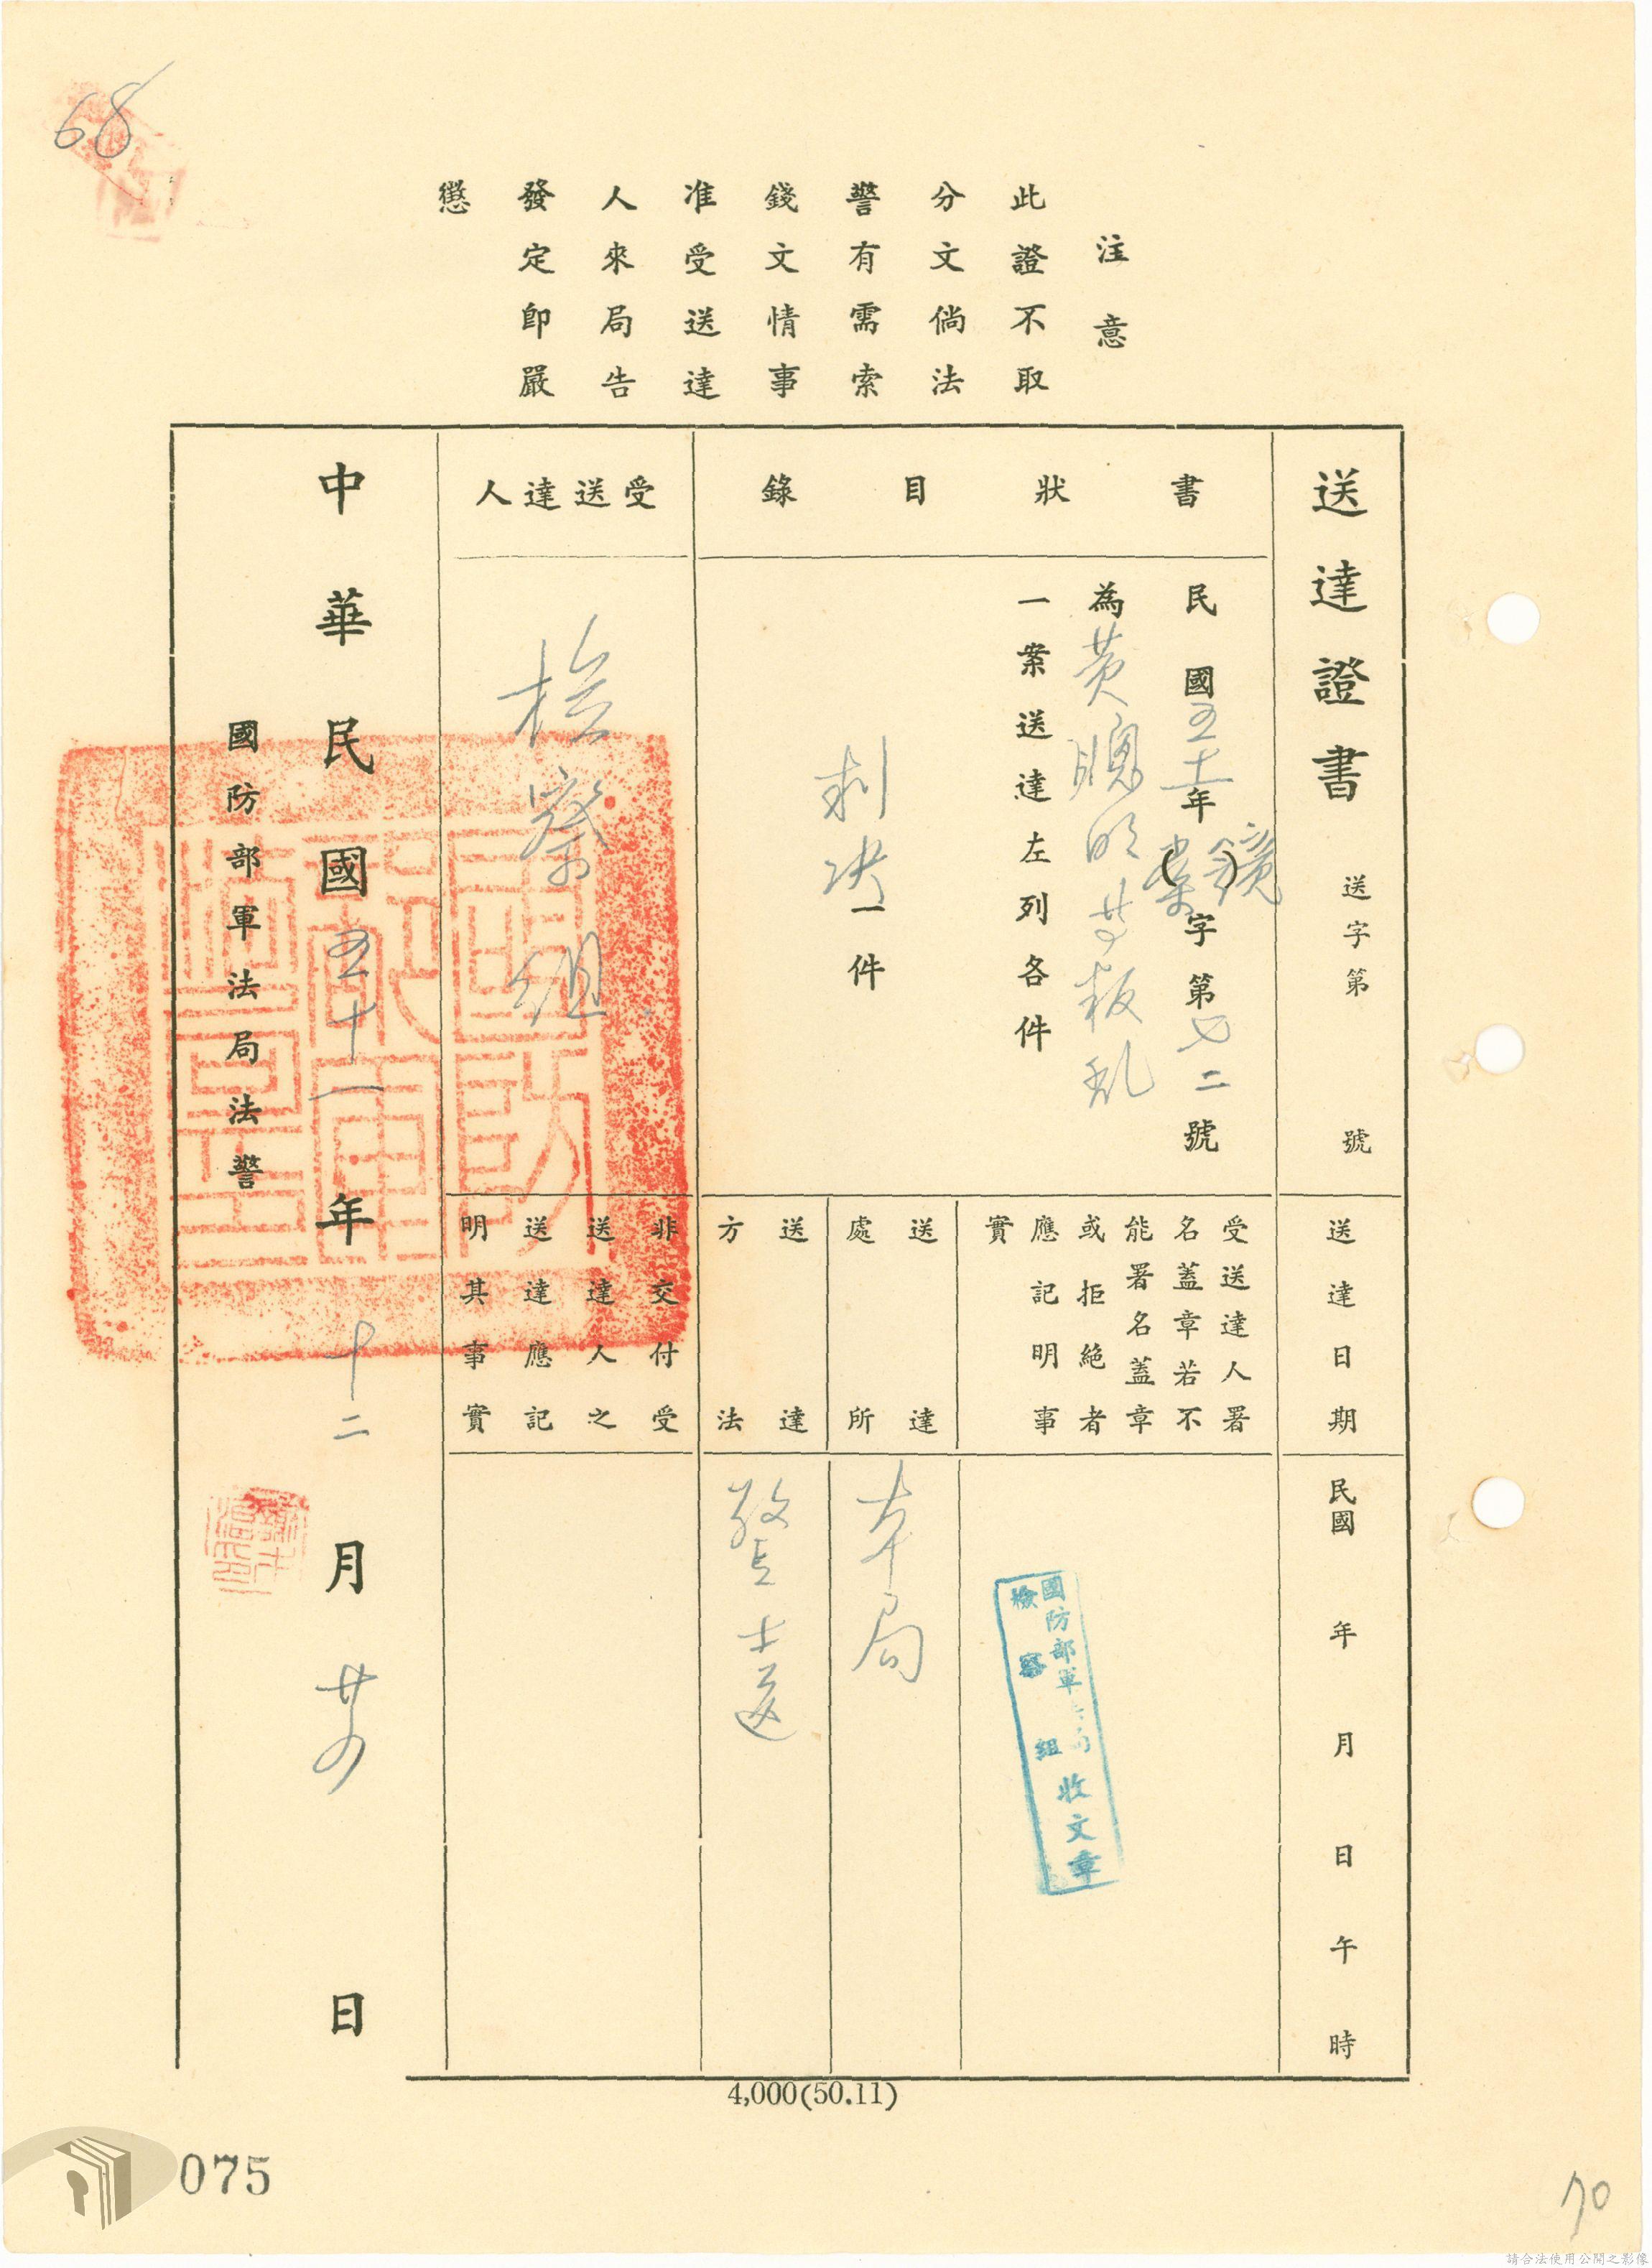 68
注意
此證不取
分文倘法
警有需索
錢文情事
准受送達
人來局告
發定即嚴
懲
送達證書 送字第 號
書狀目錄
民國五十一年(鏡業)字第七二號
為黃聰明等叛乱
一案送達左列各件
判決一件
受送達人
檢察組
送達日期
民國 年 月 日 午 時
受送達人署
名蓋章若不
能署名蓋章
或拒絕者
應記明事
實
國防部軍法局
檢察組
收文章
送達
處所
本局
送達
方法
警士送
非交付受
送達人之
送達應記
明其事實
中華民國五十一年十二月廿四日
國防部軍法局法警
4,000(50.11)
075
70
請合法使用公開之影像